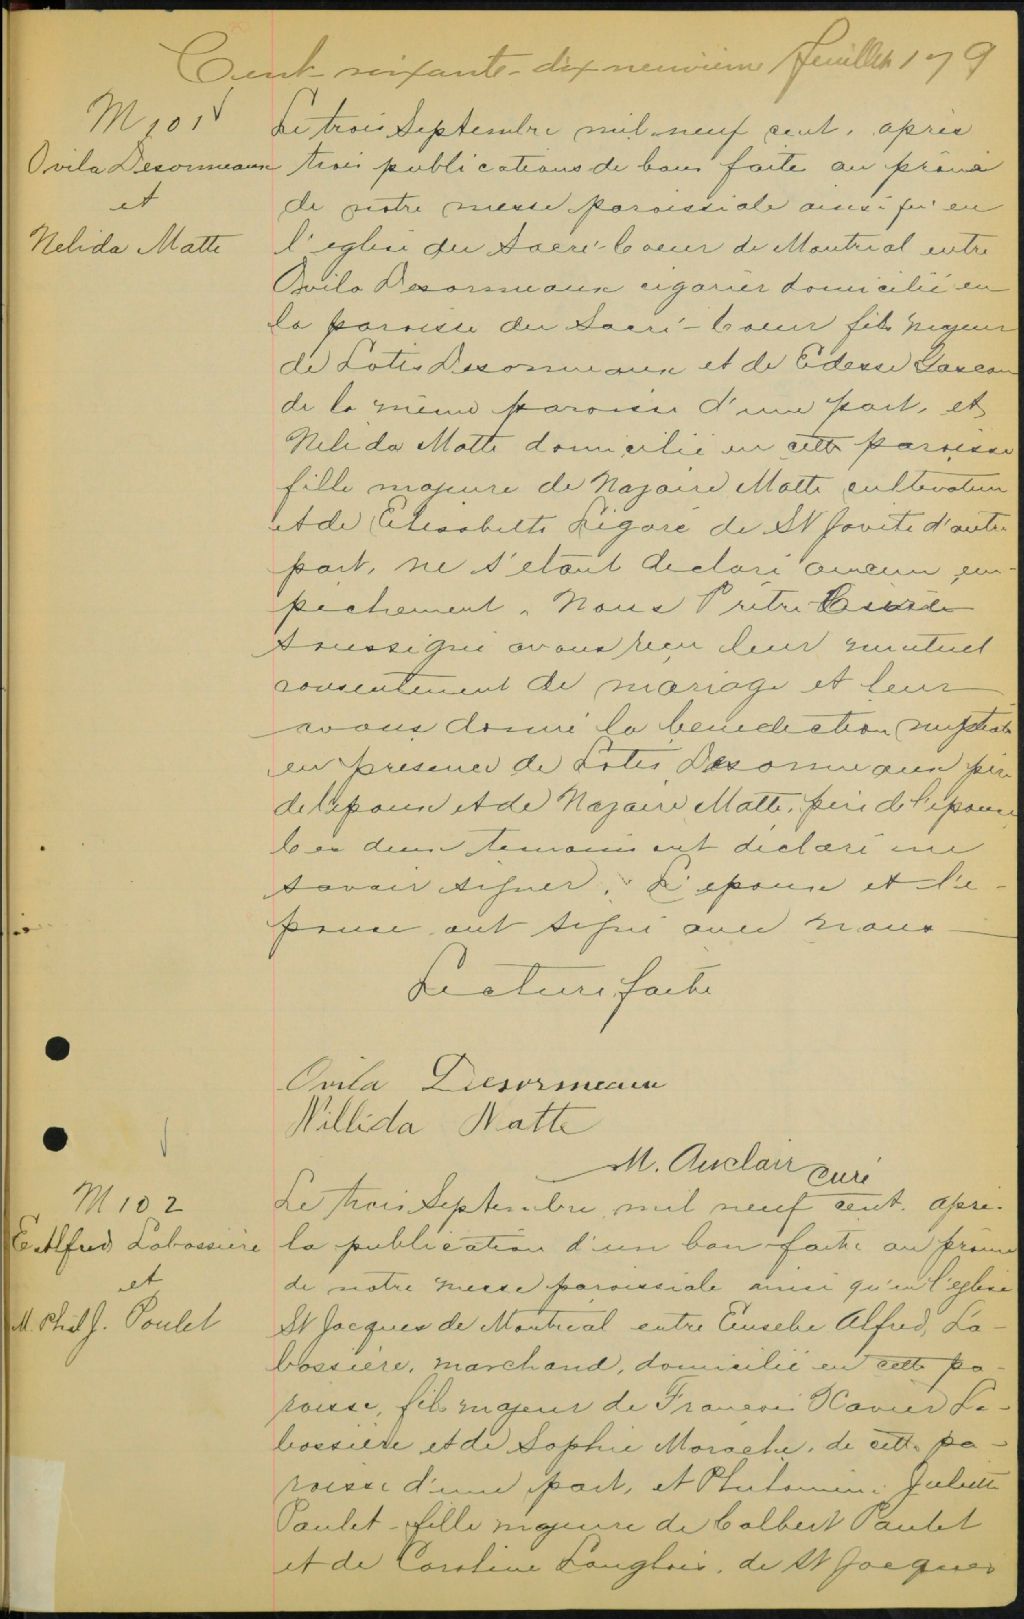 Cent soixante-dix neuvième feuillet 179
M 101
Ovila Desormeaux
et
Nelida Matte
Le trois Septembre mil neuf cent, après
trois publications de bans faite au prône
de notre messe paroissiale ainsi qu'en
l'eglise du Sacré-Coeur de Montreal entre
Ovila Desormeaux cigarier domicilié en
la paroisse du Sacré-Coeur fils majeur
de Desormeaux et de Edesse Gascon
de la même paroisse d'une part, et
Nelida Matte domicilié en cette paroisse
fille majeure de Nazaire Matte cultivateur
et de Elisabeth Légaré de St Jovite d'autre
part, ne s'etant declaré aucun em-
pêchement, Nous Prêtre Curé
soussigné avons reçu leur mutuel
consentement de mariage et leur
avons donné la benediction nuptiale
en presence de Desormeaux père
de l'epoux et de Nazaire Matte, père de l'epouse
Ces deux temoins ont déclaré ne
savoir signer. L'epoux et l'e-
pouse ont signé avec nous
Lecture faite
Ovila Desormeaux
Nillida Matte
M. Auclair curé
M 102
E. Alfred Labossière
et
M. Phil J. Paulet
Le trois Septembre mil neuf cent, après
la publication d'un ban faite au prône
de notre messe paroissiale ainsi qu'en l'eglise
St Jacques de Montréal entre Eusebe Alfred La-
bossière, marchand, domicilié en cette pa-
roisse, fils majeur de François Xavier La-
bossière et de Sophie Marache, de cette pa-
roisse d'une part, et Philomène Juliette
Paulet fille majeure de Colbert Paulet
et de Caroline Langlois, de St Jacques